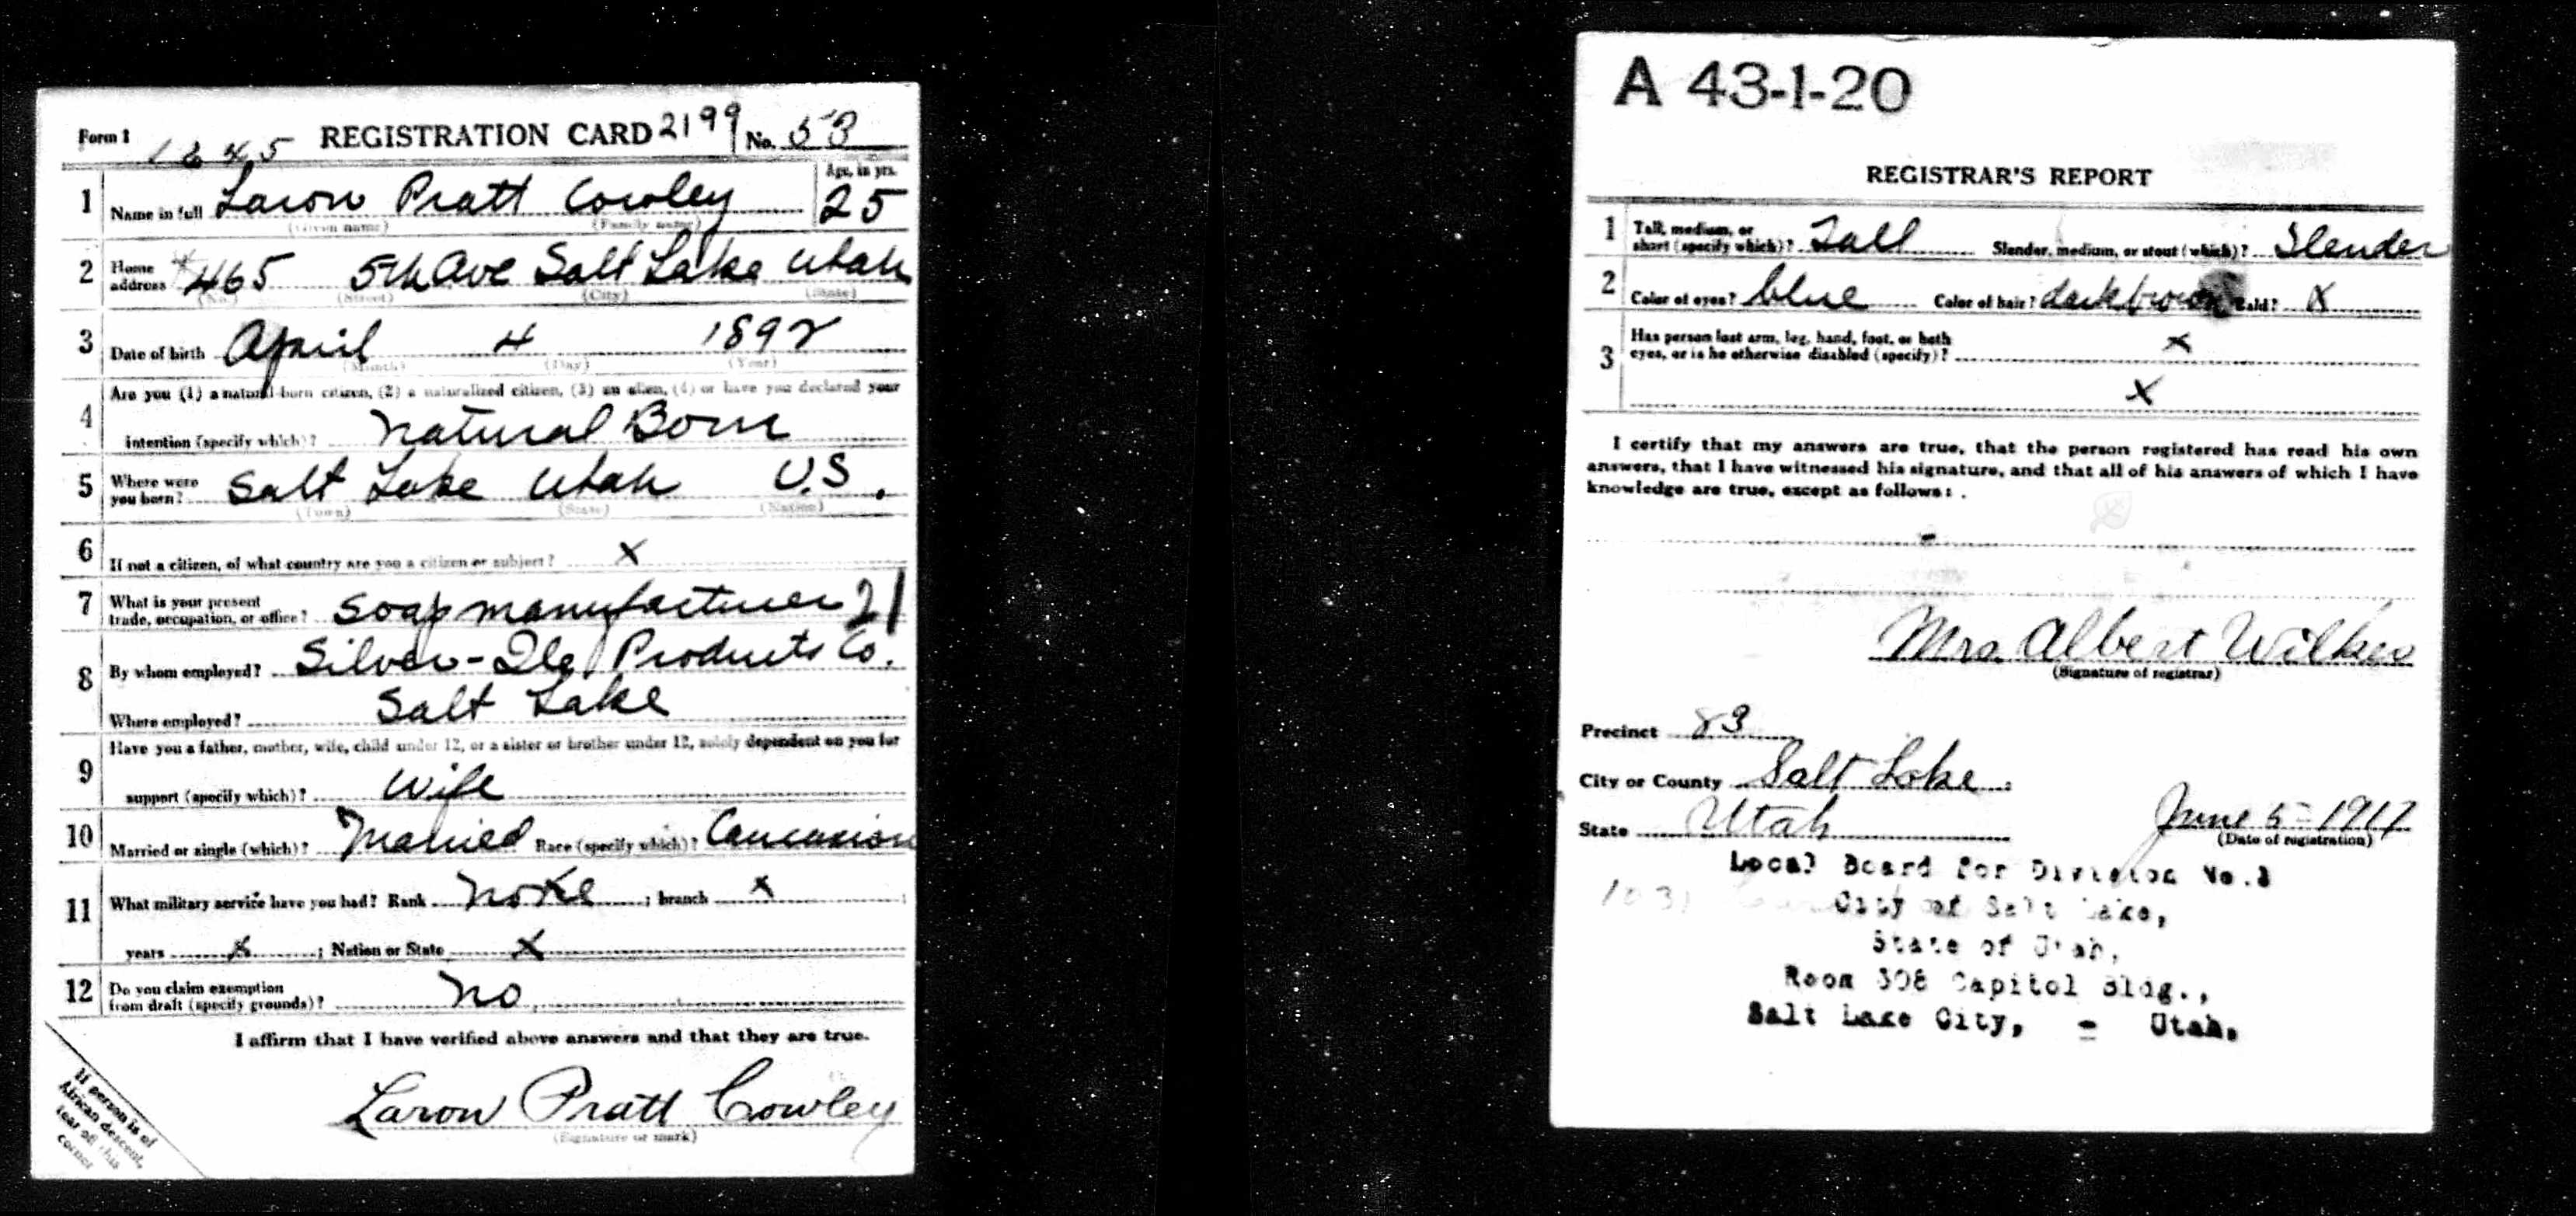 Form 1 1245 REGISTRATION CARD 2199 No. 53
1 Name in full Laron Pratt Cowley Age, in yrs. 25
(Given name) (Family name)
2 Home address 465 5th Ave Salt Lake Utah
(No.) (Street) (City) (State)
3 Date of birth April 4 1892
(Month) (Day) (Year)
4 Are you (1) a natural-born citizen, (2) a naturalized citizen, (3) an alien, (4) or have you declared your
intention (specify which)? Natural Born
5 Where were you born? Salt Lake Utah U.S.
(Town) (State) (Nation)
6 If not a citizen, of what country are you a citizen or subject? X
7 What is your present trade, occupation, or office? Soap manufacturer 21
8 By whom employed? Silver- Products Co.
Where employed? Salt Lake
9 Have you a father, mother, wife, child under 12, or a sister or brother under 12, solely dependent on you for
support (specify which)? Wife
10 Married or single (which)? Married Race (specify which)? Caucasian
11 What military service have you had? Rank None ; branch X ;
years X ; Nation or State X
12 Do you claim exemption from draft (specify grounds)? No
I affirm that I have verified above answers and that they are true.
Laron Pratt Cowley
(Signature or mark)
If person is of
African descent,
tear off this
corner
A 43-1-20
REGISTRAR'S REPORT
1 Tall, medium, or short (specify which)? Tall Slender, medium, or stout (which)? Slender
2 Color of eyes? blue Color of hair? dark brown Bald? X
3 Has person lost arm, leg, hand, foot, or both eyes, or is he otherwise disabled (specify)? X
X
I certify that my answers are true, that the person registered has read his own
answers, that I have witnessed his signature, and that all of his answers of which I have
knowledge are true, except as follows:
-
Mrs. Albert Wilkes
(Signature of registrar)
Precinct 83
City or County Salt Lake
State Utah June 5-1917
(Date of registration)
Local Board for Division No.
City of Salt Lake,
State of Utah,
Room 308 Capitol Bldg.,
Salt Lake City, - Utah.